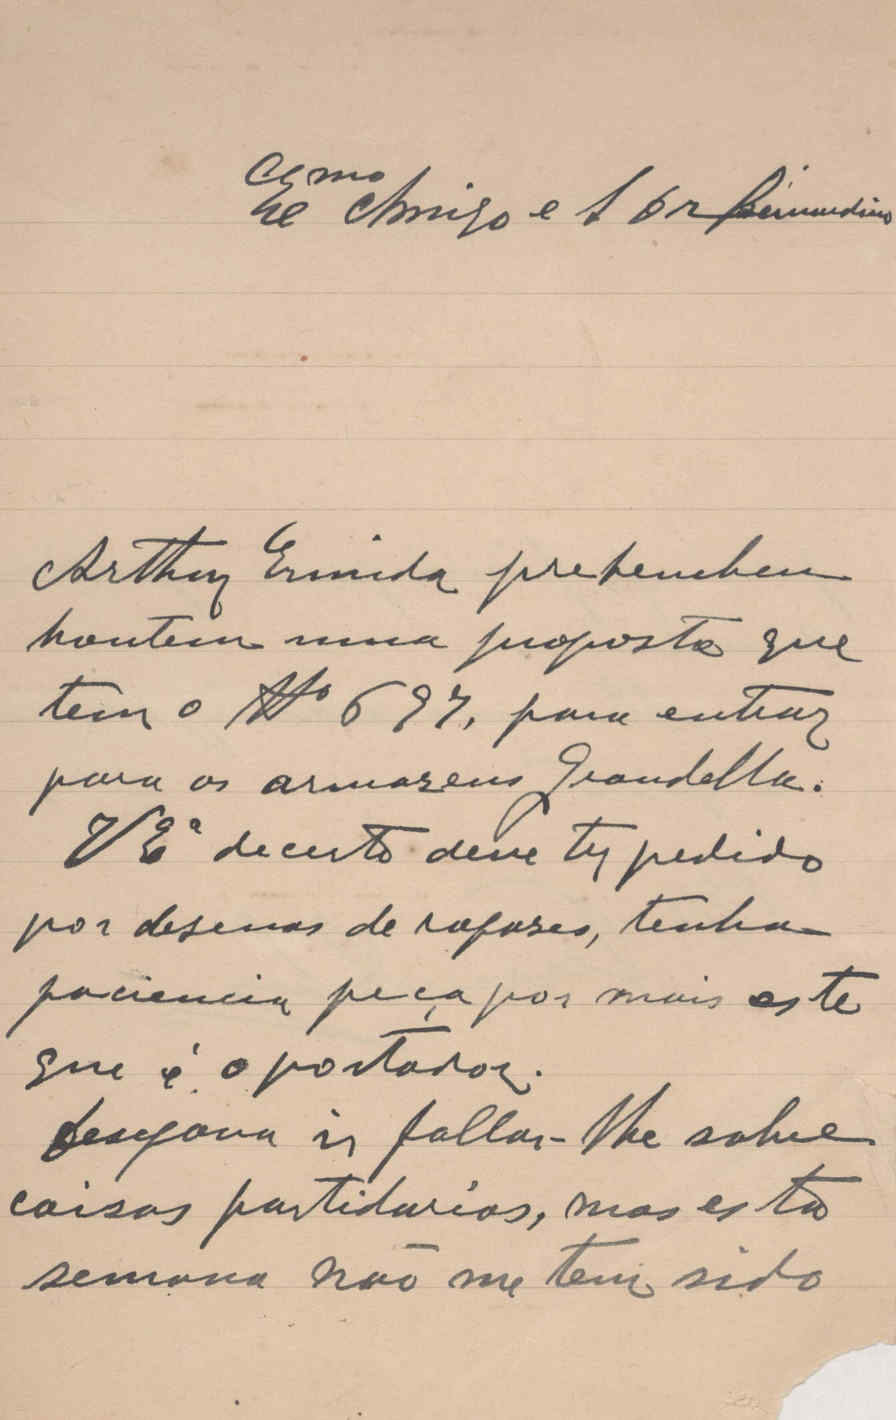 Exmo Amigo e Sr Dr Bernardino
Arthur Ermida prehencheu
hontem uma proposta que
tem o Nº 697, para entrar
para os armazens Grandella.
V Eª decerto deve ter pedido
por desenas de rapazes, tenha
paciencia peça por mais este
que é o portador.
Desejava ir fallar-lhe sobre
coisas partidarias, mas esta
semana não me tem sido